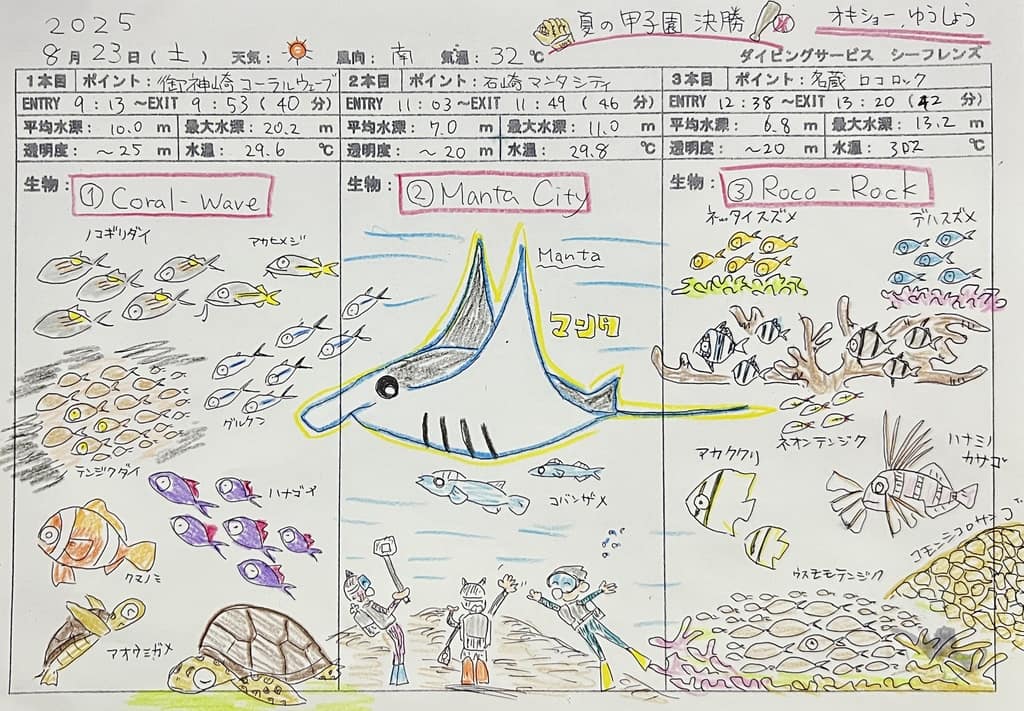 2025
夏の甲子園 決勝
オキショー.ゆうしょう
8月23日(土) 天気: 風向: 南 気温: 32℃
ダイビングサービス シーフレンズ
1本目 ポイント: 御神崎コーラルウェーブ
ENTRY 9:13~EXIT 9:53(40分)
平均水深: 10.0 m 最大水深: 20.2 m
透明度: ~25 m 水温: 29.6 ℃
生物: ①Coral-Wave
ノコギリダイ
アカヒメジ
グルクン
テンジクダイ
ハナゴイ
クマノミ
アオウミガメ
2本目 ポイント: 石崎マンタシティ
ENTRY 11:03~EXIT 11:49(46分)
平均水深: 7.0 m 最大水深: 11.0 m
透明度: ~20 m 水温: 29.8 ℃
生物: ②Manta City
Manta
マンタ
コバンザメ
3本目 ポイント: 名蔵 ロコロック
ENTRY 12:38~EXIT 13:20(42分)
平均水深: 6.8 m 最大水深: 13.2 m
透明度: ~20 m 水温: 30.2 ℃
生物: ③Roco-Rock
ネッタイスズメ
デバスズメ
ネオンテンジク
アカククリ
ハナミノ
カサゴ
ウスモモテンジク
コモンシコロサンゴ